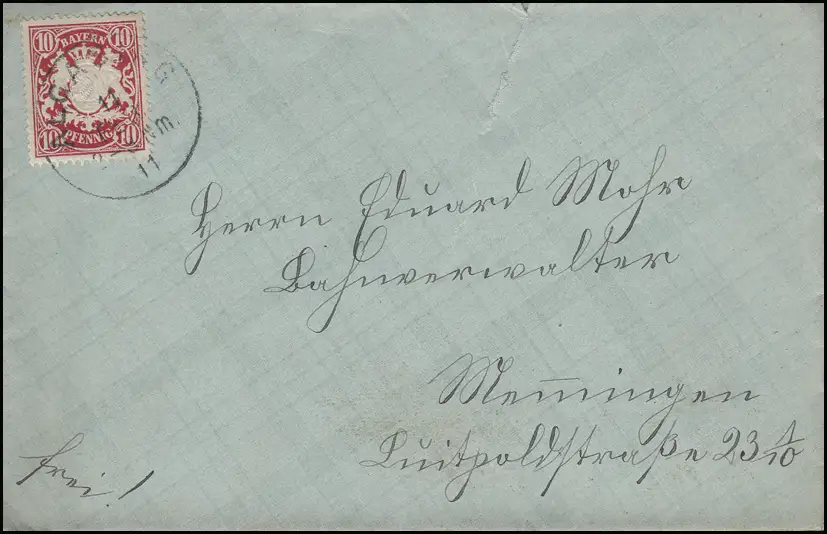 10 BAYERN 10
10 PFENNIG 10
Nm.
11
Herrn Eduard Mohr
Bahnverwalter
Mem̅ingen
Luitpoldstraße 23 1/10
frei!